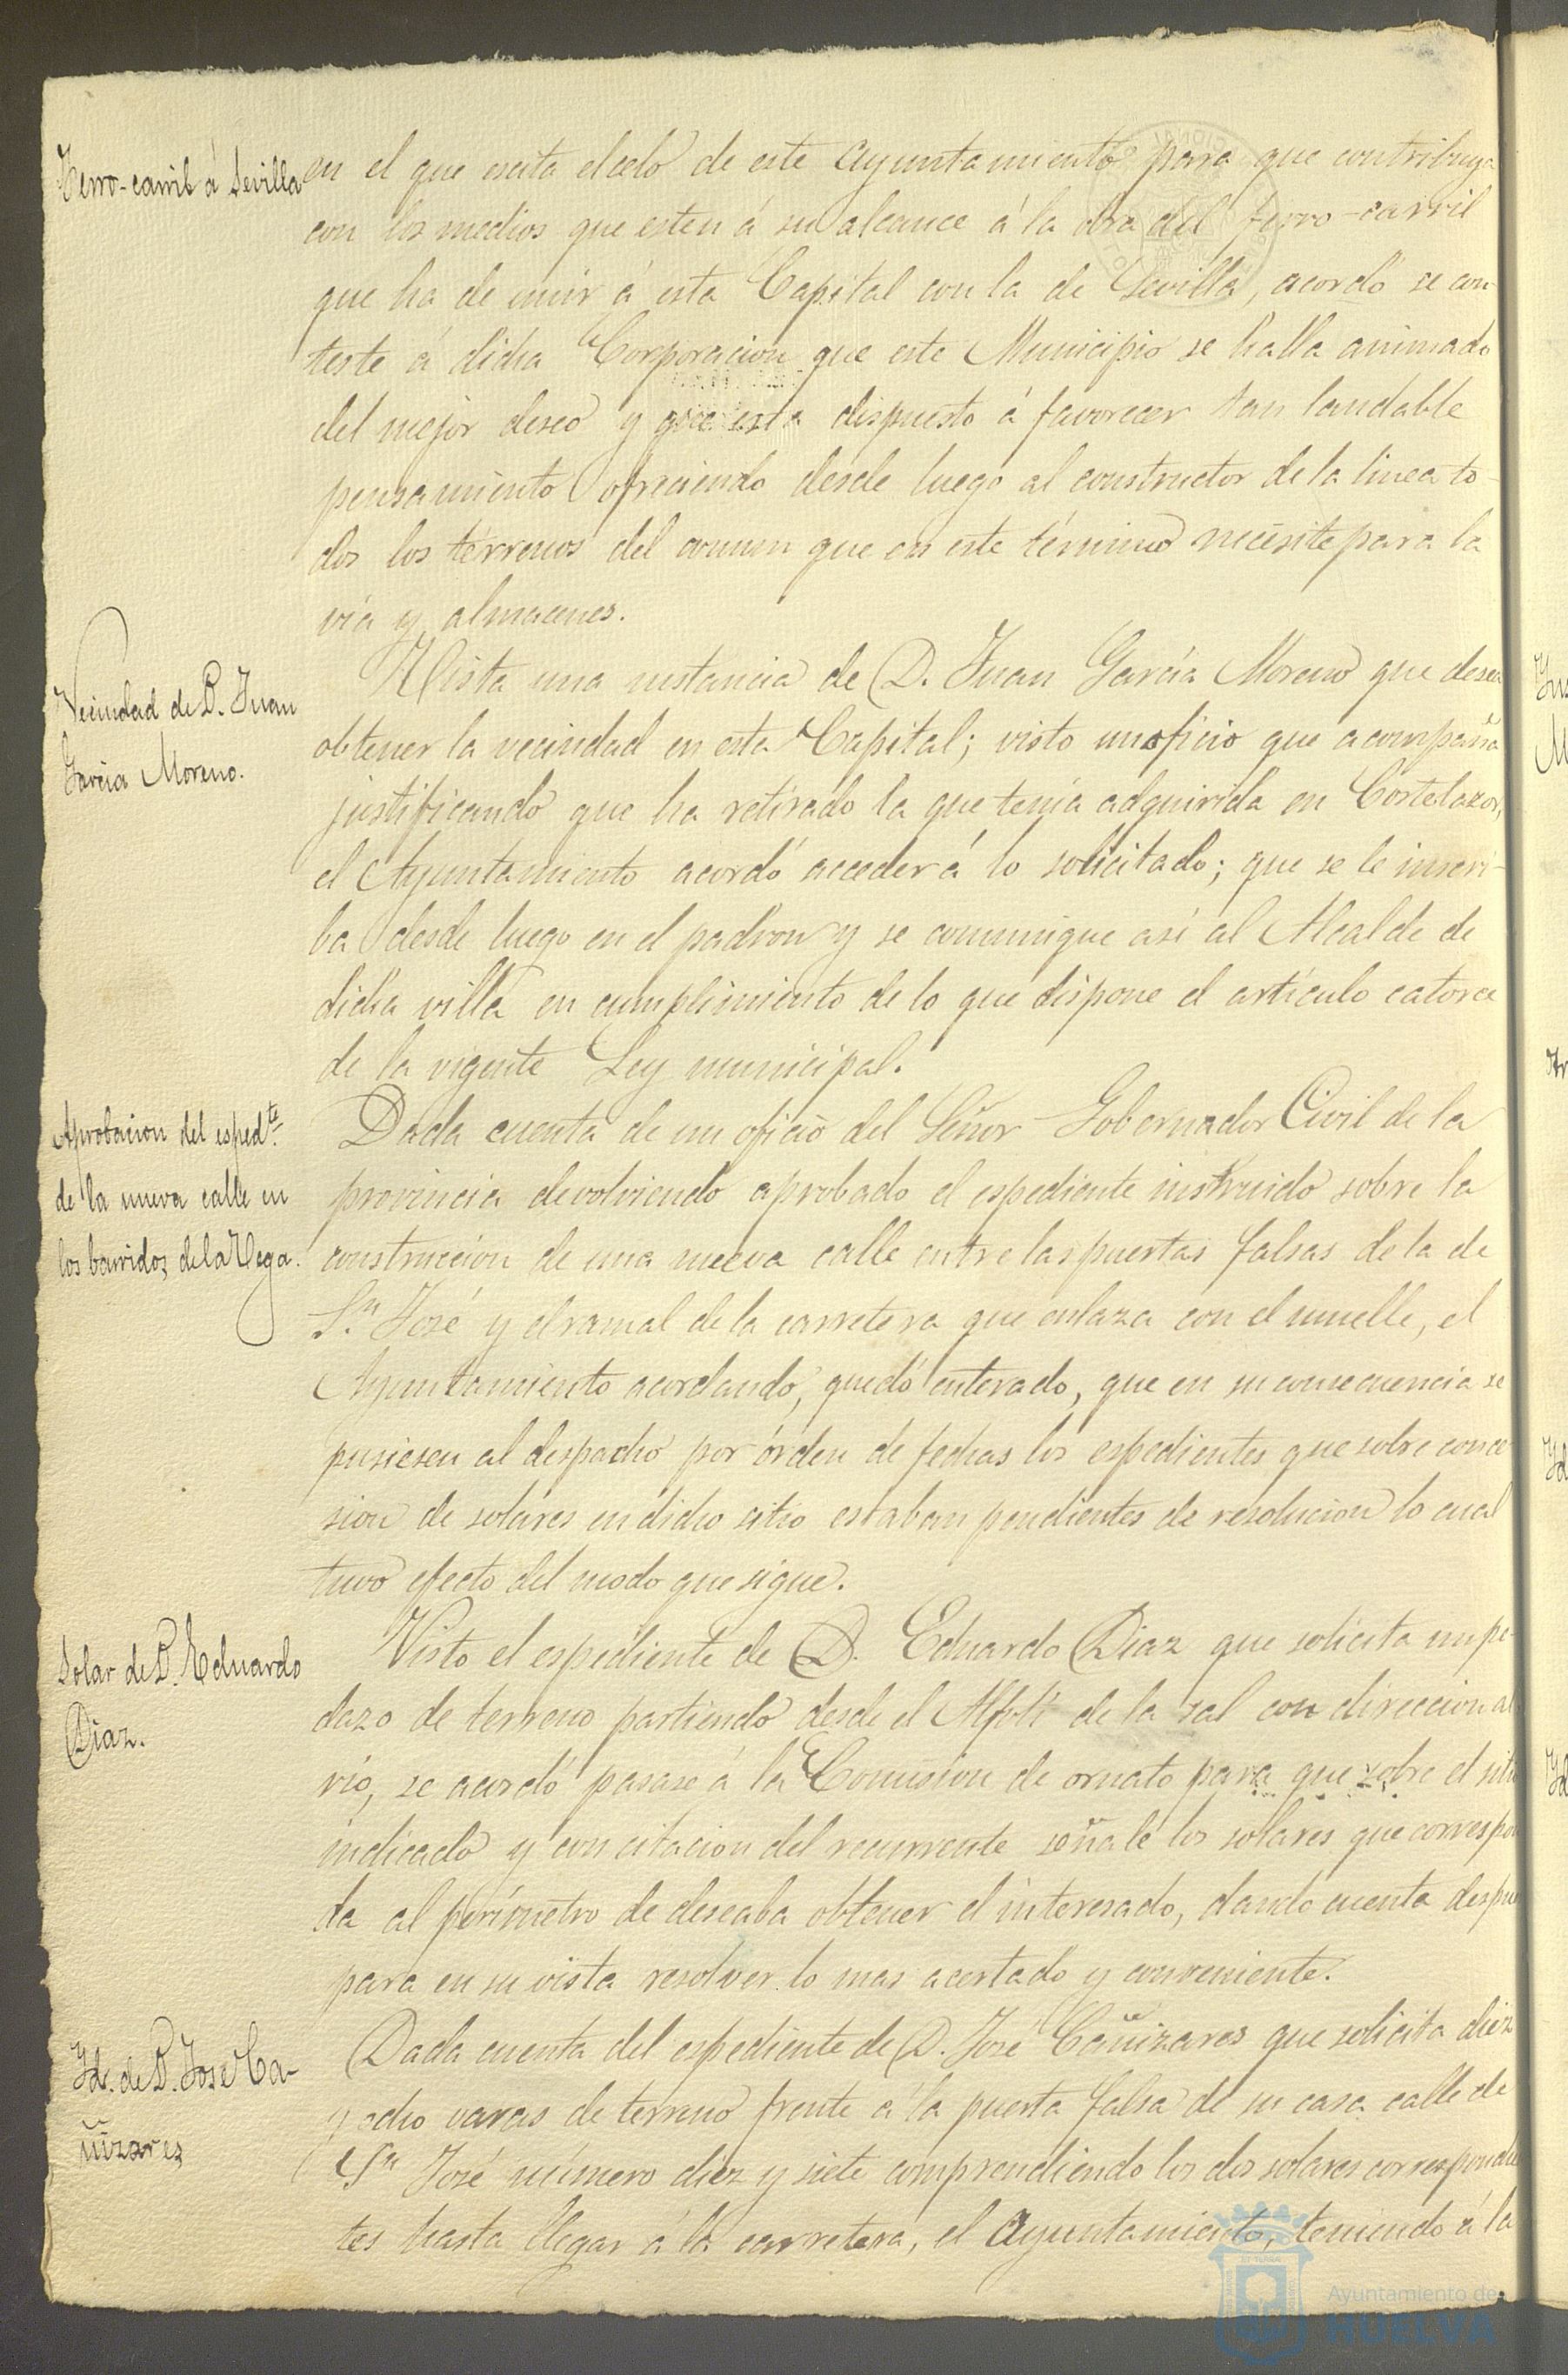 Ferro-carril á Sevilla
en el que escita el celo de este Ayuntamiento para que contribuya
con los medios que esten á su alcance á la obra del ferro-carril
que ha de unir á esta Capital con la de Sevilla, acordó se con
teste á dicha Corporacion que este Municipio se halla animado
del mejor deseo y que esta dispuesto á favorecer tan laudable
pensamiento ofreciendo desde luego al constructor de la linea to-
dos los terrenos del comun que en este término necesite para la
via y almacenes.
Vecindad de D. Juan
Garcia Moreno.
Vista una instancia de D. Juan García Moreno que desea
obtener la vecindad en esta Capital; visto un oficio que acompaña
justificando que ha retirado la que tenia adquirida en Cortelazor,
el Ayuntamiento acordó acceder á lo solicitado; que se le inscri-
ba desde luego en el padron y se comunique asi al Alcalde de
dicha villa en cumplimiento de lo que dispone el artículo catorce
de la vigente Ley municipal.
Aprobacion del esped.te
de la nueva calle en
los barridos de la Vega.
Dada cuenta de un oficio del Señor Gobernador Civil de la
provincia devolviendo aprobado el espediente instruido sobre la
construccion de una nueva calle entre las puertas falsas de la de
S.n José y el ramal de la carretera que enlaza con el muelle, el
Ayuntamiento acordando, quedó enterado, que en su consecuencia se
pusiesen al despacho por órden de fechas los espedientes que sobre conce
sion de solares en dicho sitio estaban pendientes de resolucion lo cual
tuvo efecto del modo que sigue.
Solar de D. Eduardo
Diaz.
Visto el espediente de D. Eduardo Diaz que solicita un pe-
dazo de terreno partiendo desde el Alfolí de la sal con direccion al
rio, se acordó pasase á la Comision de ornato para que sobre el sitio
indicado y con citacion del recurrente señale los solares que correspon
da al perímetro de deseaba obtener el interesado, dando cuenta despues
para en su vista resolver lo mas acertado y conveniente.
Id. de D. Jose Ca-
ñizares
Dada cuenta del espediente de D. José Cañizares que solicita diez
y ocho varas de terreno frente á la puerta falsa de su casa calle de
Sn José número diez y siete comprendiendo los dos solares correspondien
tes hasta llegar á la carretera, el Ayuntamiento, teniendo á la
Ayuntamiento de
HUELVA